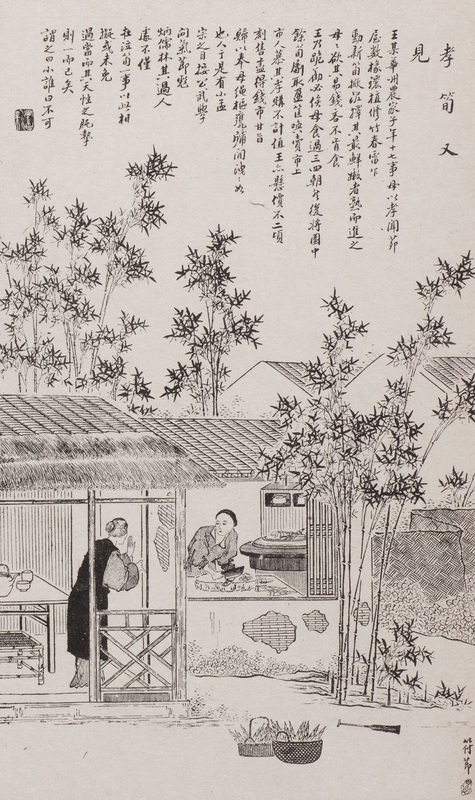 孝筍又
見
王某華州農家子年十七事母以孝聞茆
屋數椽環植修竹春雷乍
動新筍掀泥擇其最鮮嫩者熟而進之
母母欲其易錢吝不肯食
王乃跪勸必俟母食過三四朝後將園中
餘筍斸取盈筐喚賣市上
市人慕其孝購不計值王亦懸價不二頃
刻售盡得錢市甘旨
歸以奉母繩樞甕牖間洩洩如
也人于是有小孟
宗之目按公武學
問氣節彪
炳儒林其過人
處不僅
在泣筍一事以此相
擬或未免
過當而其天性之肫摯
則一而已矣
之曰小誰曰不可
符節